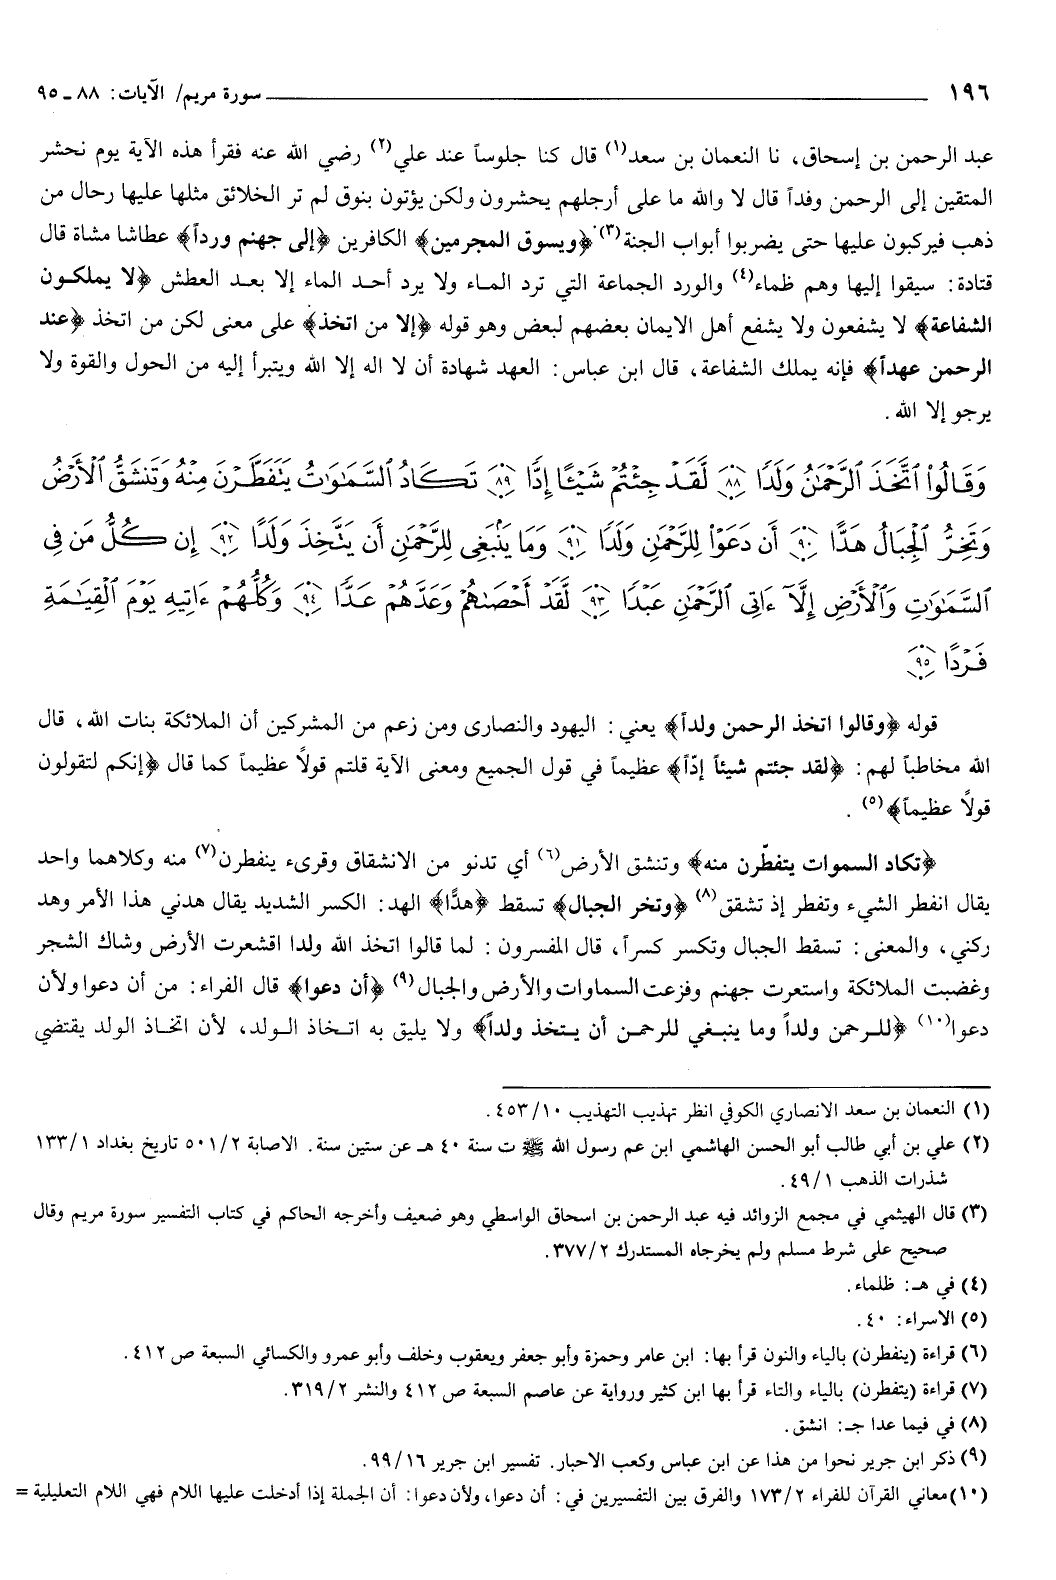 ١٩٦ سورة مريم/ الآيات: ٨٨ ـ ٩٥
عبد الرحمن بن إسحاق، نا النعمان بن سعد(١) قال كنا جلوساً عند علي(٢) رضي الله عنه فقرأ هذه الآية يوم نحشر
المتقين إلى الرحمن وفداً قال لا والله ما على أرجلهم يحشرون ولكن يؤتون بنوق لم تر الخلائق مثلها عليها رحال من
ذهب فيركبون عليها حتى يضربوا أبواب الجنة(٣) ﴿ويسوق المجرمين﴾ الكافرين ﴿إلى جهنم ورداً﴾ عطاشا مشاة قال
قتادة: سيقوا إليها وهم ظماء(٤) والورد الجماعة التي ترد الماء ولا يرد أحد الماء إلا بعد العطش ﴿لا يملكون
الشفاعة﴾ لا يشفعون ولا يشفع أهل الايمان بعضهم لبعض وهو قوله ﴿إلا من اتخذ﴾ على معنى لكن من اتخذ ﴿عند
الرحمن عهداً﴾ فإنه يملك الشفاعة، قال ابن عباس: العهد شهادة أن لا اله إلا الله ويتبرأ إليه من الحول والقوة ولا
يرجو إلا الله.
وَقَالُوا۟ ٱتَّخَذَ ٱلرَّحْمَٰنُ وَلَدًا ٨٨ لَّقَدْ جِئْتُمْ شَيْـًٔا إِدًّا ٨٩ تَكَادُ ٱلسَّمَٰوَٰتُ يَتَفَطَّرْنَ مِنْهُ وَتَنشَقُّ ٱلْأَرْضُ
وَتَخِرُّ ٱلْجِبَالُ هَدًّا ٩٠ أَن دَعَوْا۟ لِلرَّحْمَٰنِ وَلَدًا ٩١ وَمَا يَنۢبَغِى لِلرَّحْمَٰنِ أَن يَتَّخِذَ وَلَدًا ٩٢ إِن كُلُّ مَن فِى
ٱلسَّمَٰوَٰتِ وَٱلْأَرْضِ إِلَّآ ءَاتِى ٱلرَّحْمَٰنِ عَبْدًا ٩٣ لَّقَدْ أَحْصَىٰهُمْ وَعَدَّهُمْ عَدًّا ٩٤ وَكُلُّهُمْ ءَاتِيهِ يَوْمَ ٱلْقِيَٰمَةِ
فَرْدًا ٩٥
قوله ﴿وقالوا اتخذ الرحمن ولداً﴾ يعني: اليهود والنصارى ومن زعم من المشركين أن الملائكة بنات الله، قال
الله مخاطباً لهم: ﴿لقد جئتم شيئاً إدّاً﴾ عظيماً في قول الجميع ومعنى الآية قلتم قولاً عظيماً كما قال ﴿إنكم لتقولون
قولاً عظيماً﴾(٥).
﴿تكاد السموات يتفطّرن منه﴾ وتنشق الأرض(٦) أي تدنو من الانشقاق وقرىء ينفطرن(٧) منه وكلاهما واحد
يقال انفطر الشيء وتفطر إذ تشقق(٨) ﴿وتخر الجبال﴾ تسقط ﴿هدًّا﴾ الهد: الكسر الشديد يقال هدني هذا الأمر وهد
ركني، والمعنى: تسقط الجبال وتكسر كسراً، قال المفسرون: لما قالوا اتخذ الله ولدا اقشعرت الأرض وشاك الشجر
وغضبت الملائكة واستعرت جهنم وفزعت السماوات والأرض والجبال(٩) ﴿أن دعوا﴾ قال الفراء: من أن دعوا ولأن
دعوا(١٠) ﴿للرحمن ولداً وما ينبغي للرحمن أن يتخذ ولداً﴾ ولا يليق به اتخاذ الولد، لأن اتخاذ الولد يقتضي
(١) النعمان بن سعد الانصاري الكوفي انظر تهذيب التهذيب ٤٥٣/١٠.
(٢) علي بن أبي طالب أبو الحسن الهاشمي ابن عم رسول الله ﷺ ت سنة ٤٠ هـ عن ستين سنة. الاصابة ٥٠١/٢ تاريخ بغداد ١٣٣/١
شذرات الذهب ٤٩/١.
(٣) قال الهيثمي في مجمع الزوائد فيه عبد الرحمن بن اسحاق الواسطي وهو ضعيف وأخرجه الحاكم في كتاب التفسير سورة مريم وقال
صحيح على شرط مسلم ولم يخرجاه المستدرك ٣٧٧/٢.
(٤) في هـ: ظلماء.
(٥) الاسراء: ٤٠.
(٦) قراءة (ينفطرن) بالياء والنون قرأ بها: ابن عامر وحمزة وأبو جعفر ويعقوب وخلف وأبو عمرو والكسائي السبعة ص ٤١٢.
(٧) قراءة (يتفطرن) بالياء والتاء قرأ بها ابن كثير ورواية عن عاصم السبعة ص ٤١٢ والنشر ٣١٩/٢.
(٨) في فيما عدا جـ: انشق.
(٩) ذكر ابن جرير نحوا من هذا عن ابن عباس وكعب الاحبار. تفسير ابن جرير ٩٩/١٦.
(١٠) معاني القرآن للفراء ١٧٣/٢ والفرق بين التفسيرين في: أن دعوا، ولأن دعوا: أن الجملة إذا أدخلت عليها اللام فهي اللام التعليلية =